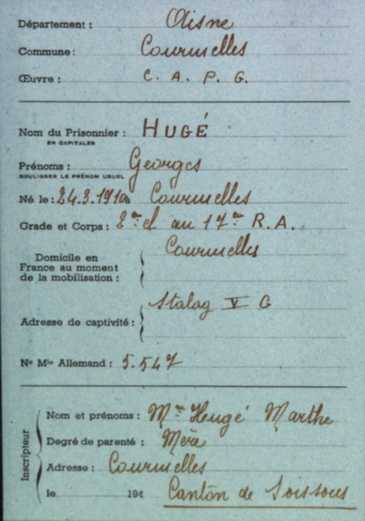 Département : Aisne
Commune : Courmelles
Œuvre : C. A. P. G.
Nom du Prisonnier : HUGÉ
EN CAPITALES
Prénoms : Georges
SOULIGNER LE PRÉNOM USUEL
Né le : 24.3.1910 Courmelles
Grade et Corps : 2me cl au 17me R. A.
Domicile en France au moment de la mobilisation : Courmelles
Adresse de captivité : Stalag V G
No Mle Allemand : 5.547
Inscripteur
Nom et prénoms : Me Hugé Marthe
Degré de parenté : Mère
Adresse : Courmelles
le 194 Canton de Soissons